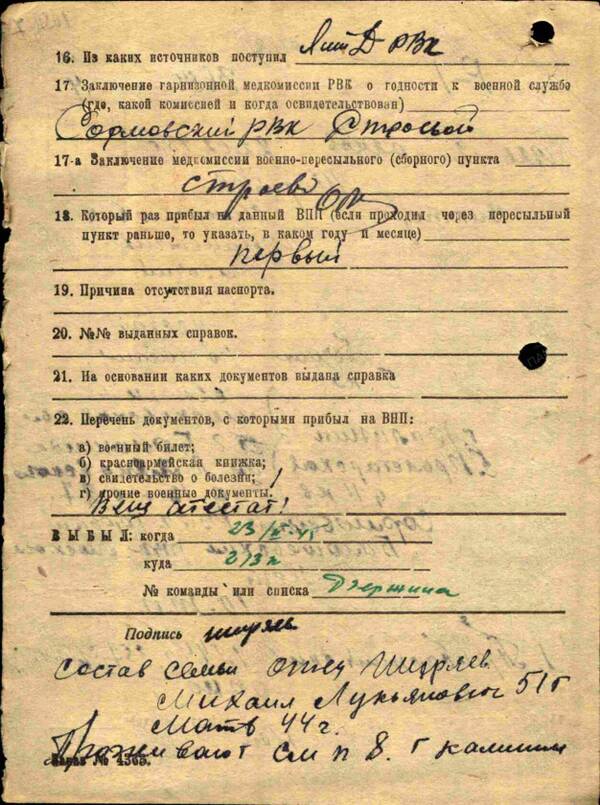 16. Из каких источников поступил РВК
17. Заключение гарнизонной медкомиссии РВК о годности к военной службе
(где, какой комиссией и когда освидетельствован)
Сормовский РВК Строевой
17-а Заключение медкомиссии военно-пересыльного (сборного) пункта
строево
18. Который раз прибыл на данный ВПП (если проходил через пересыльный
пункт раньше, то указать, в каком году и месяце)
первый
19. Причина отсутствия паспорта.
20. №№ выданных справок.
21. На основании каких документов выдана справка
22. Перечень документов, с которыми прибыл на ВПП:
а) военный билет;
б) красноармейская книжка;
в) свидетельство о болезни;
г) прочие военные документы.
Вещ аттестат!
ВЫБЫЛ: когда 23
куда
№ команды или списка
Подпись ширяев
Состав семьи отец Ширяев
Михаил Лукьянович 51г
Мать 44 г.
Проживают См п 8. г калинин
Заказ № 4365.